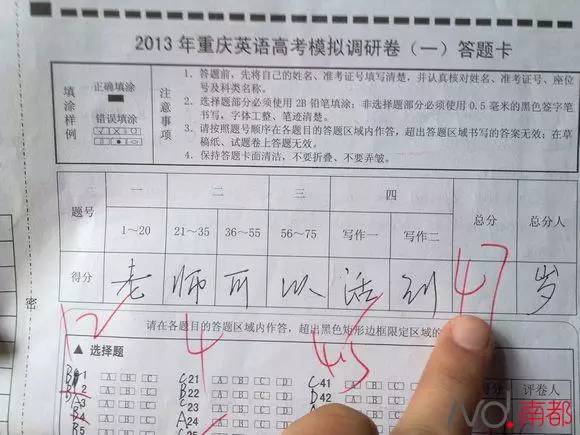 2013年重庆英语高考模拟调研卷（一）答题卡
填涂样例
正确填涂
错误填涂
注意事项
1. 答题前，先将自己的姓名、准考证号填写清楚，并认真核对姓名、准考证号、座位
号及科类名称。
2. 选择题部分必须使用2B铅笔填涂；非选择题部分必须使用0.5毫米的黑色签字笔
书写，字体工整、笔迹清楚。
3. 请按照题号顺序在各题目的答题区域内作答，超出答题区域书写的答案无效；在草
稿纸、试题卷上答题无效。
4. 保持答题卡面清洁，不要折叠、不要弄皱。
题号 一 二 三 四 总分 总分人
1~20 21~35 36~55 56~75 写作一 写作二
得分 老 师 可 以 活 到 47 岁
密
12 4 4.5
请在各题目的答题区域内作答，超出黑色矩形边框限定区域的
▲ 选择题
B 1 A B C C21 A B C D C41 A B C D
B 2 A B C B22 A B C D D42 A B
A3 C23
B4 A24
B5 25
评卷人
南都